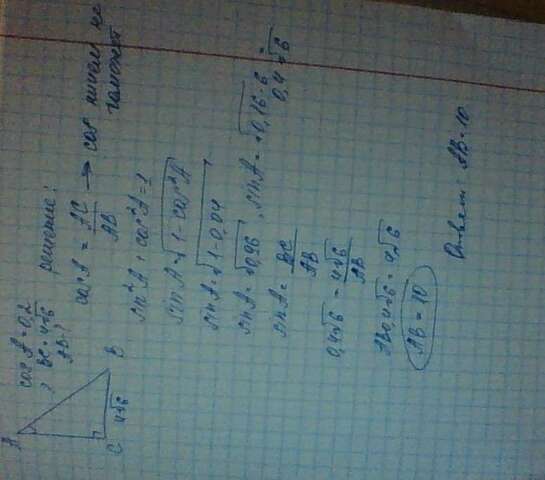 A
cos A = 0,2
BC = 4√6
AB-?
C 4√6 B
решение:
cos A = AC/AB → cos ничем не поможет
sin²A + cos²A = 1
sin A = √(1 - cos²A)
sin A = √(1 - 0,04)
sin A = √0,96, sin A = √(0,16·6) = 0,4√6
sin A = BC/AB
0,4√6 = 4√6/AB
AB0,4√6 = 4√6
AB = 10
Ответ: AB = 10